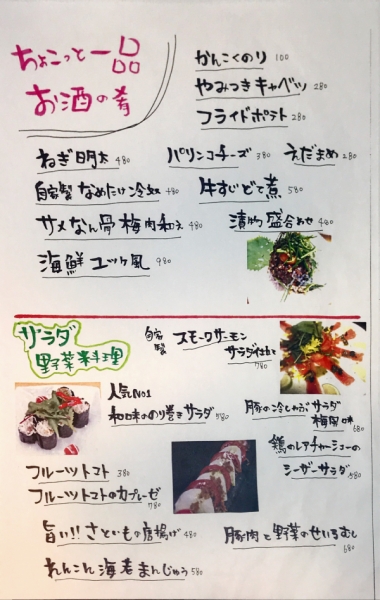 ちょこっと一品
お酒の肴
かんこくのり 100
やみつきキャベツ 280
フライドポテト 280
ねぎ明太 480
パリンコチーズ 380
えだまめ 280
自家製 なめたけ冷奴 480
牛すじどて煮 580
サメなん骨梅肉和え 480
漬物盛合わせ 480
海鮮ユッケ風 980
サラダ
野菜料理
自家製 スモークサーモン
サラダ仕立て
780
人気No1
和味ののり巻きサラダ 580
豚の冷しゃぶサラダ
梅風味
680
鶏のレアチャーシューの
シーザーサラダ
580
フルーツトマト 380
フルーツトマトのカプレーゼ
780
旨い!! さといもの唐揚げ 480
豚肉と野菜のせいろむし
680
れんこん海老まんじゅう 580